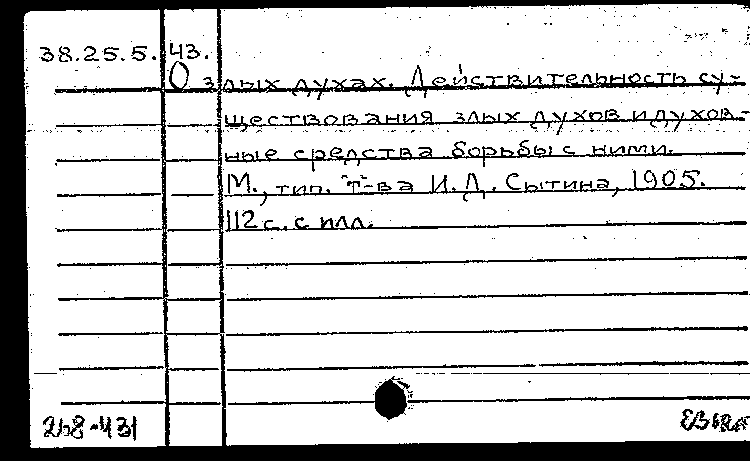 38.25.5.43.
О злых духах. Действительность су-
ществования злых духов и духов-
ные средства борьбы с ними.
М., тип. т-ва И. Д. Сытина, 1905.
112 с. с илл.
268-431